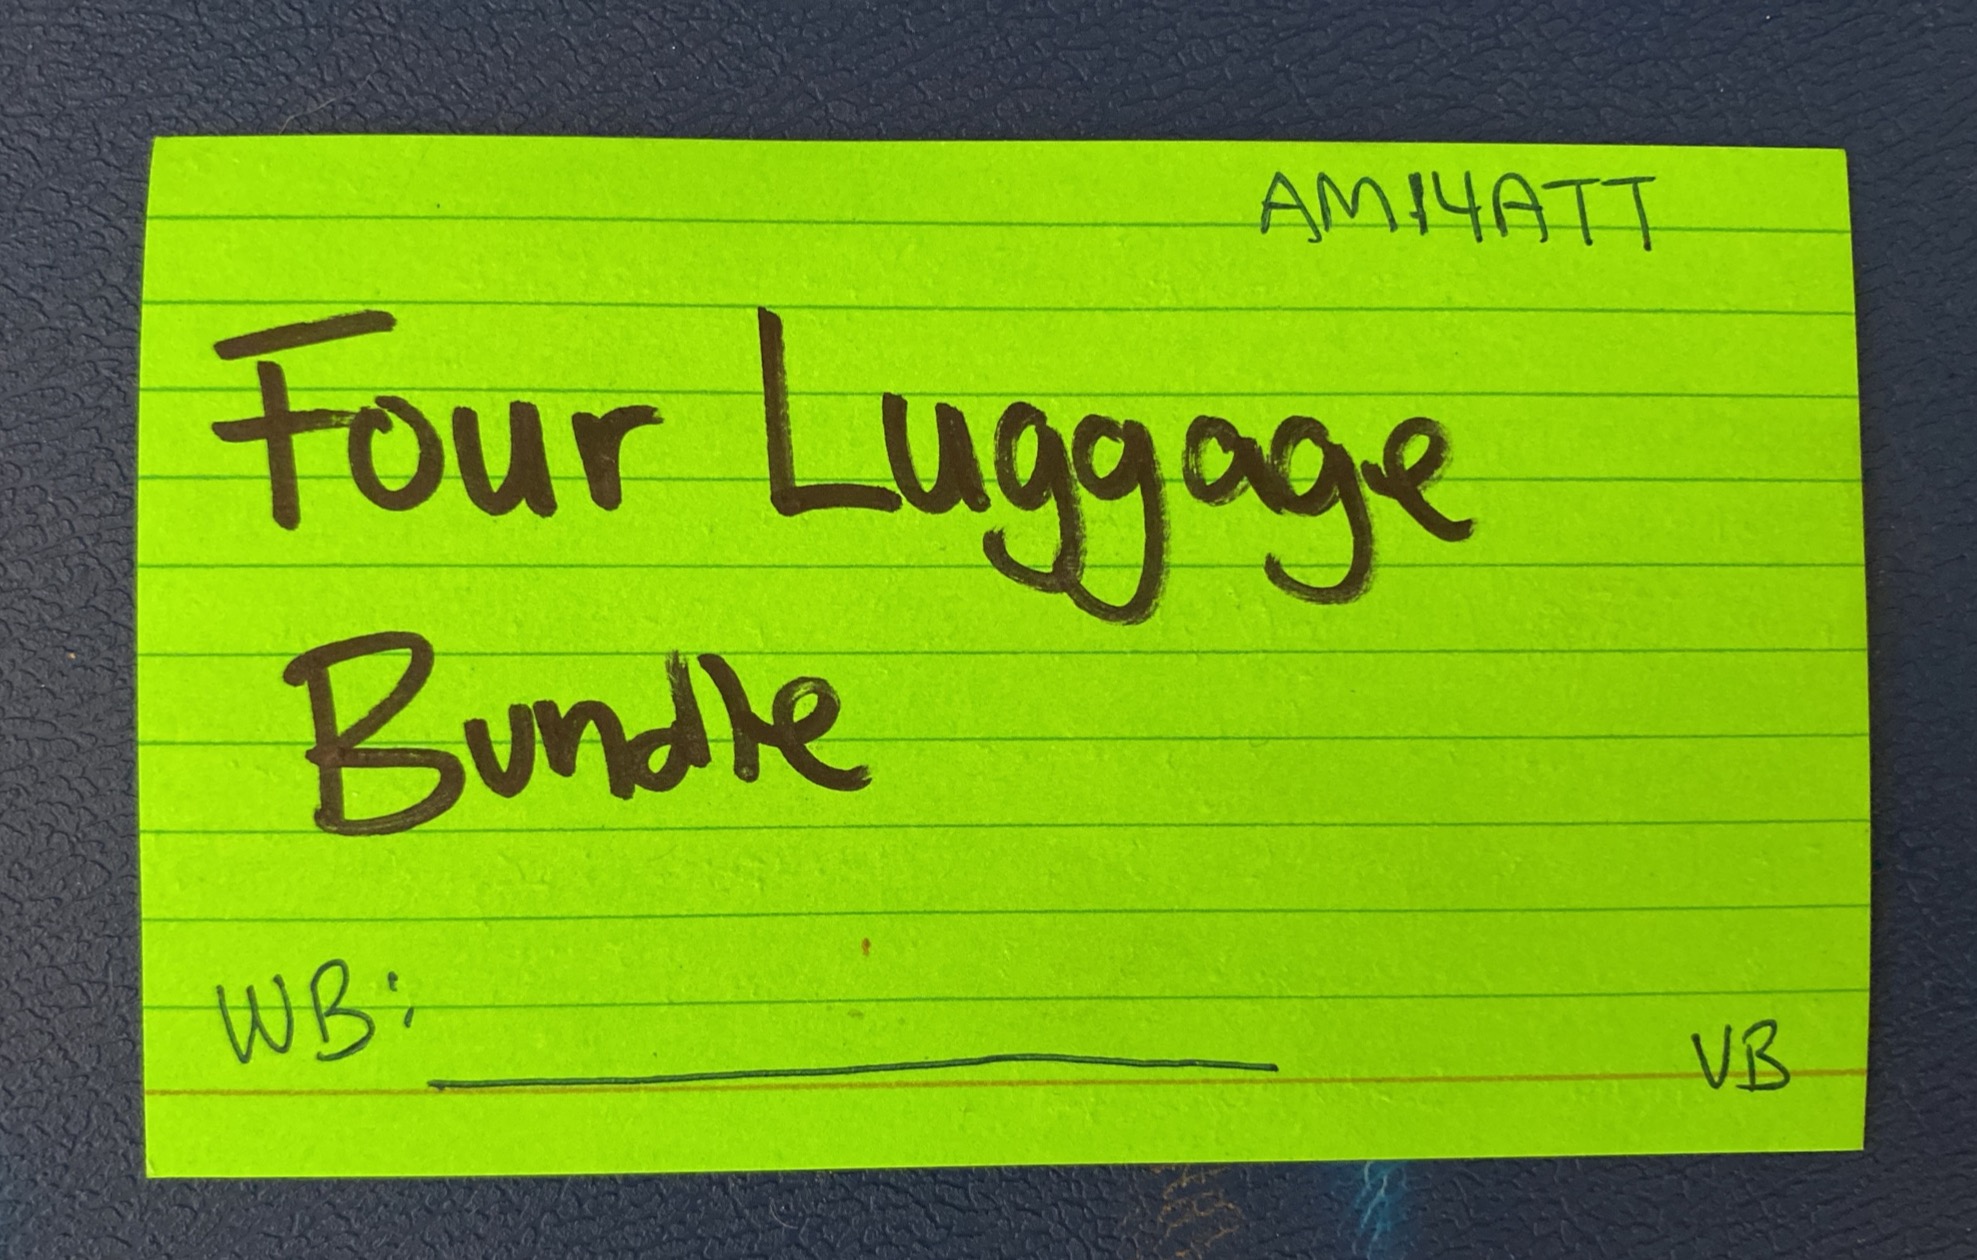 AM14ATT
Four Luggage
Bundle
WB:
VB